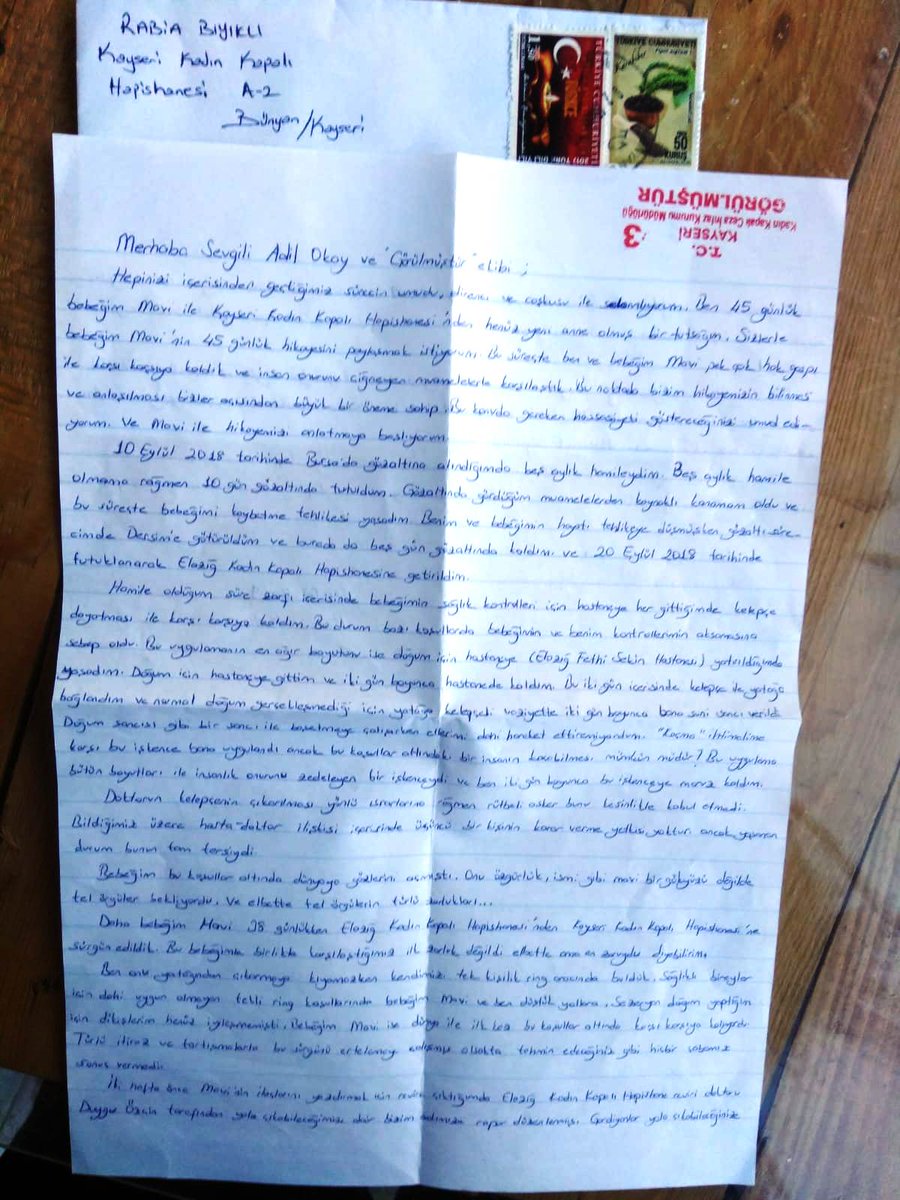 RABİA BIYIKLI
Kayseri Kadın Kapalı
Hapishanesi A-2
Bünyan/Kayseri
TÜRKİYE CUMHURİYETİ
2017 TÜRK DİLİ YILI
TÜRKİYE CUMHURİYETİ
T.C.
KAYSERİ
Kadın Kapalı Ceza İnfaz Kurumu Müdürlüğü
GÖRÜLMÜŞTÜR
3
Merhaba Sevgili Adil Okay ve "Görülmüştür" ekibi;
Hepinizi içerisinden geçtiğimiz sürecin umudu, direnci ve coşkusu ile selamlıyorum. Ben 45 günlük
bebeğim Mavi ile Kayseri Kadın Kapalı Hapishanesi'nden henüz yeni anne olmuş bir tutsağım. Sizlerle
bebeğim Mavi'nin 45 günlük hikayesini paylaşmak istiyorum. Bu süreçte ben ve bebeğim Mavi pek çok hak gaspı
ile karşı karşıya kaldık ve insan onurunu çiğneyen muamelelerle karşılaştık. Bu noktada bizim hikayemizin bilinmesi
ve anlaşılması bizler açısından büyük bir öneme sahip. Bu konuda gereken hassasiyeti göstereceğinizi umud edi-
yorum. Ve Mavi ile hikayemizi anlatmaya başlıyorum.
10 Eylül 2018 tarihinde Bursa'da gözaltına alındığımda beş aylık hamileydim. Beş aylık hamile
olmama rağmen 10 gün gözaltında tutuldum. Gözaltında gördüğüm muamelelerden kaynaklı kanamam oldu ve
bu süreçte bebeğimi kaybetme tehlikesi yaşadım. Benim ve bebeğimin hayatı tehlikeye düşmüşken gözaltı süre-
cimde Dersim'e götürüldüm ve burada da beş gün gözaltında kaldım. ve 20 Eylül 2018 tarihinde
tutuklanarak Elazığ Kadın Kapalı Hapishanesine getirildim.
Hamile olduğum süre zarfı içerisinde bebeğimin sağlık kontrolleri için hastaneye her gittiğimde kelepçe
dayatması ile karşı karşıya kaldım. Bu durum bazı koşullarda bebeğimin ve benim kontrollerimin aksamasına
sebep oldu. Bu uygulamanın en ağır boyutunu ise doğum için hastaneye (Elazığ Fethi Sekin Hastanesi) yatırıldığımda
yaşadım. Doğum için hastaneye gittim ve iki gün boyunca hastanede kaldım. Bu iki gün içerisinde kelepçe ile yatağa
bağlandım ve normal doğum gerçekleşmediği için yatağa kelepçeli vaziyette iki gün boyunca bana suni sancı verildi.
Doğum sancısı gibi bir sancı ile başetmeye çalışırken ellerimi dahi hareket ettiremiyordum. "Kaçma" ihtimaline
karşı bu işkence bana uygulandı ancak bu koşullar altındaki bir insanın kaçabilmesi mümkün müdür? Bu uygulama
bütün boyutları ile insanlık onurunu zedeleyen bir işkenceydi ve ben iki gün boyunca bu işkenceye maruz kaldım.
Doktorun kelepçenin çıkarılması yönlü ısrarlarına rağmen rütbeli asker bunu kesinlikle kabul etmedi.
Bildiğimiz üzere hasta-doktor ilişkisi içerisinde üçüncü bir kişinin karar verme yetkisi yoktur ancak yaşanan
durum bunun tam tersiydi.
Bebeğim bu koşullar altında dünyaya gözlerini açmıştı. Onu özgürlük, ismi gibi mavi bir gökyüzü değilde
tel örgüler bekliyordu. Ve elbette tel örgülerin türlü zorlukları...
Daha bebeğim Mavi 38 günlükken Elazığ Kadın Kapalı Hapishanesi'nden Kayseri Kadın Kapalı Hapishanesi'ne
sürgün edildik. Bu bebeğimle birlikte karşılaştığımız ilk zorluk değildi elbette ama en zoruydu diyebilirim.
Ben onu yatağından çıkarmaya kıyamazken kendimizi tek kişilik ring aracında bulduk. Sağlıklı bireyler
için dahi uygun olmayan tekli ring koşullarında bebeğim Mavi ve ben düştük yollara. Sezaryen doğum yaptığım
için dikişlerim henüz iyileşmemişti. Bebeğim Mavi ise dünya ile ilk kez bu koşullar altında karşı karşıya kalıyordu.
Türlü itiraz ve tartışmalarla bu sürgünü ertelemeye çalışmış olsakta tahmin edeceğiniz gibi hiçbir çabamız
sonuç vermedi.
İki hafta önce Mavi'nin ilaçlarını yazdırmak için revire çıktığımda Elazığ Kadın Kapalı Hapishane revir doktoru
Duygu Özgin tarafından yola çıkabileceğimize dair bizim adımıza rapor düzenlenmişti. Gardiyanlar yola çıkabileceğimize